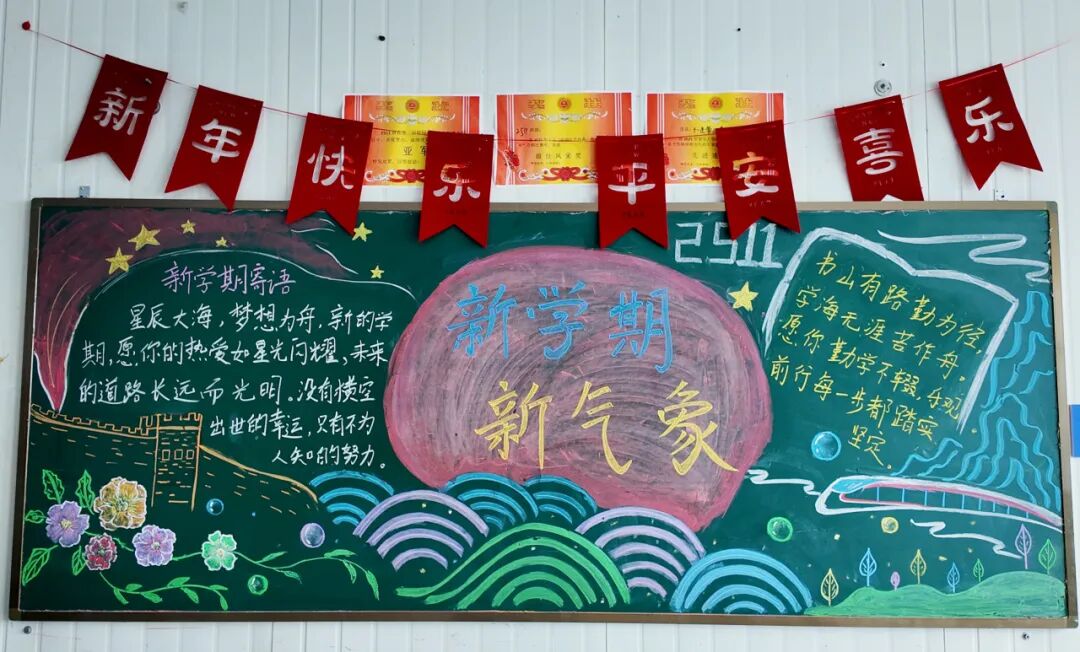 新年快乐平安喜乐
奖状
奖状
奖状
亚军
2511
最佳风采奖
2511
新学期寄语
星辰大海,梦想为舟,新的学
期,愿你的热爱如星光闪耀、未来
的道路长远而光明。没有横空
出世的幸运,只有不为
人知的努力。
新学期
新气象
书山有路勤为径,
学海无涯苦作舟。
愿你勤学不辍、乐观
前行每一步都踏实
坚定。